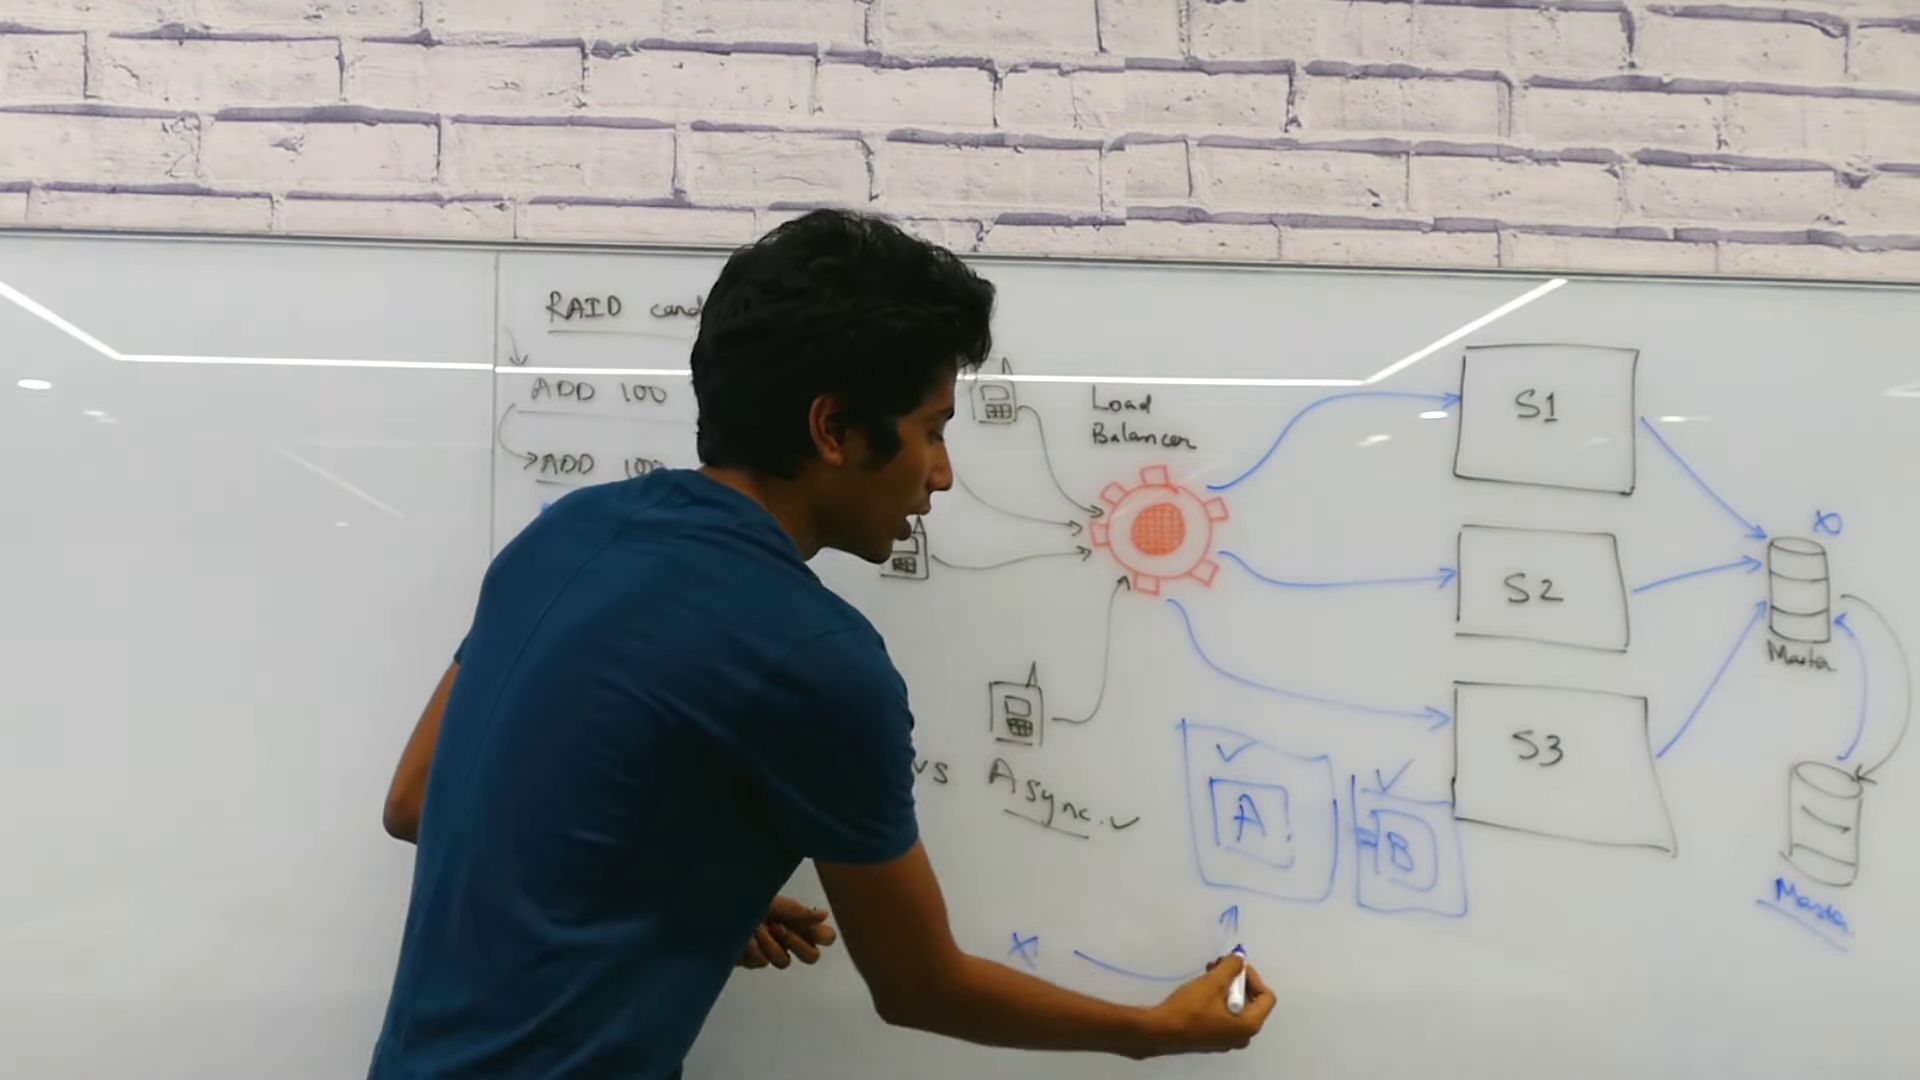 RAID
ADD 100
ADD 100
Load
Balancer
S1
S2
S3
Master
Master
vs Async.
A
B
X